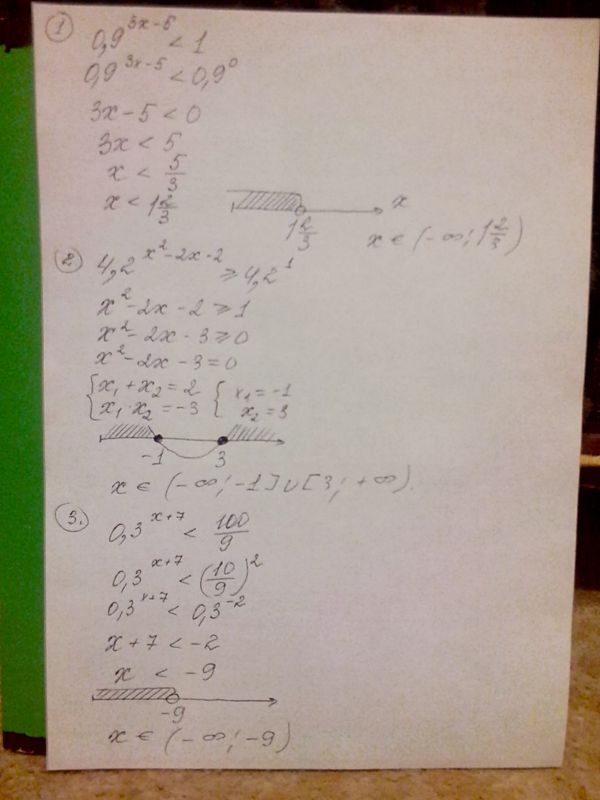 1
0,9^(3x-5) < 1
0,9^(3x-5) < 0,9^0
3x - 5 < 0
3x < 5
x < 5/3
x < 1 2/3
x
1 2/3
x ∈ (-∞; 1 2/3)
2
4,2^(x²-2x-2) ⩾ 4,2^1
x² - 2x - 2 ⩾ 1
x² - 2x - 3 ⩾ 0
x² - 2x - 3 = 0
{ x₁ + x₂ = 2 { x₁ = -1
{ x₁ · x₂ = -3 { x₂ = 3
-1 3
x ∈ (-∞; -1] ∪ [3; +∞).
3.
0,3^(x+7) < 100/9
0,3^(x+7) < (10/9)²
0,3^(x+7) < 0,3^(-2)
x + 7 < -2
x < -9
-9
x ∈ (-∞; -9)